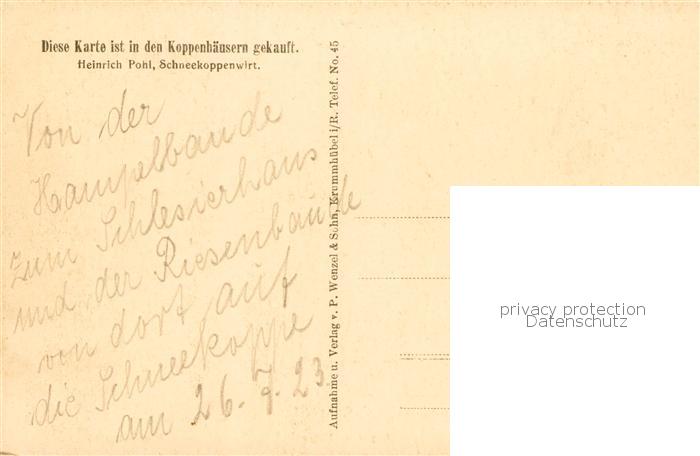 Diese Karte ist in den Koppenhäusern gekauft.
Heinrich Pohl, Schneekoppenwirt.
Von der
Hampelbaude
zum Schlesierhaus
und der Riesenbaude
von dort auf
die Schneekoppe
am 26.7.23
Aufnahme u. Verlag v. P. Wenzel & Sohn, Krummhübel i/R. Telef. No. 45
privacy protection
Datenschutz